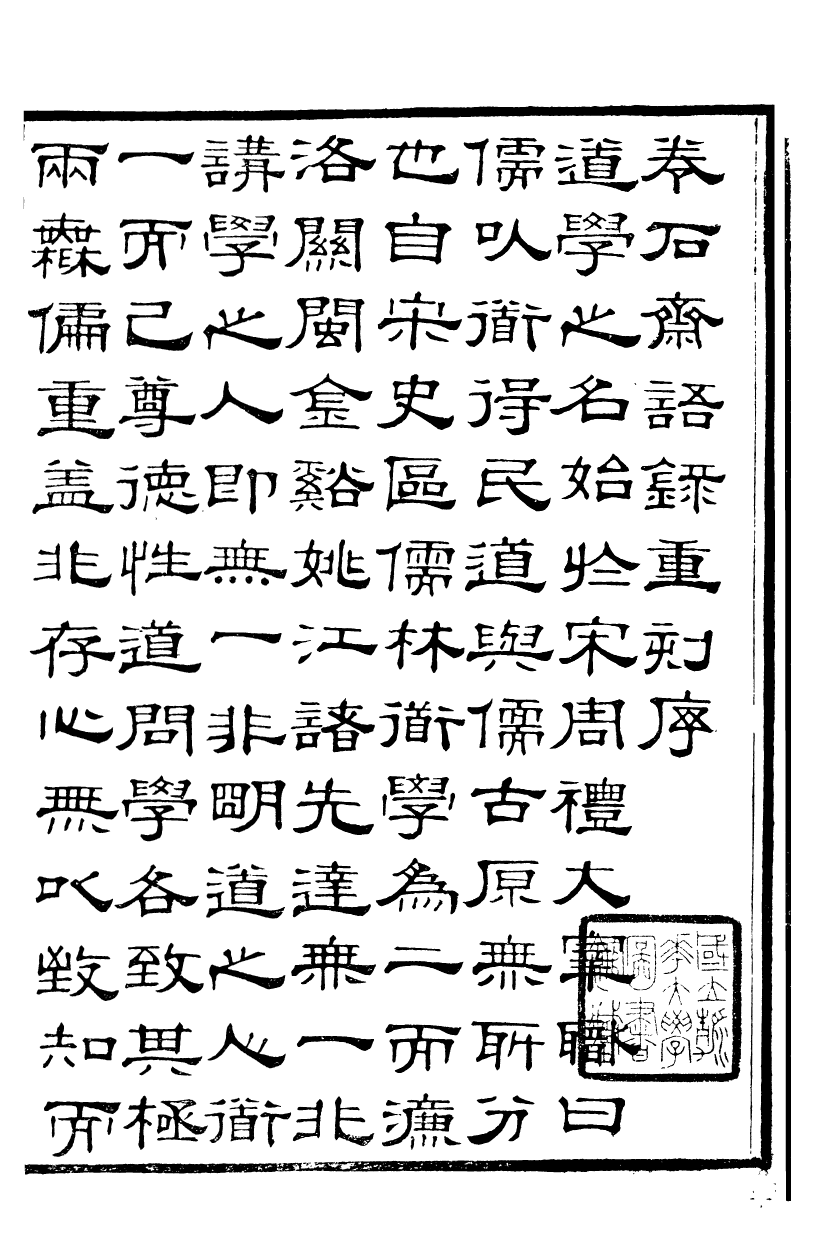 卷石齋語錄重刻序
道學之名始於宋周禮大宰職曰
儒以衜得民道與儒古原無所分
也自宋史區儒林衜學為二而濂
洛關閩金谿姚江諸先達無一非
講學之人即無一非明道之心衜
一而已尊德性道問學各致其極
兩無偏重蓋非存心無以致知而
國立清
華大學
圖書
館藏